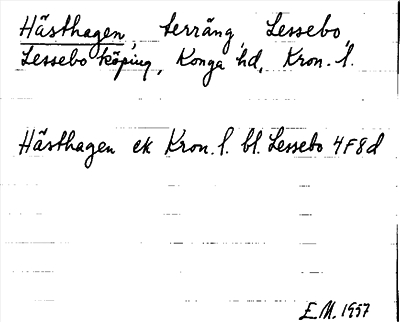 Hästhagen, terräng, Lessebo,
Lessebo köping, Konga hd, Kron. l.
Hästhagen ek Kron. l. bl. Lessebo 4F8d
E.M. 1957